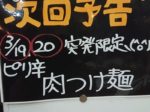 次回予告
3/19 20 突発限定
ピリ辛
肉つけ麺